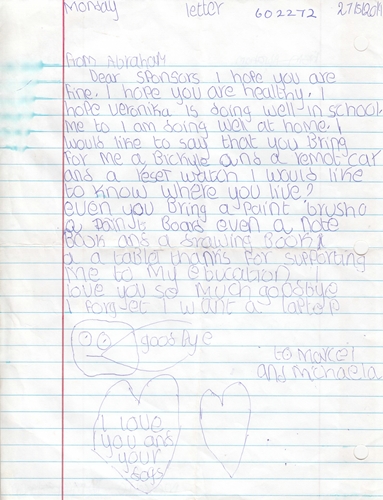 Monday letter 602272
from Abraham
Dear sponsors I hope you are
fine. I hope you are healthy. I
hope veronika is doing well in school
me to I am doing well at home. I
would like to say that you bring
for me a Bickyle and a remot car
and a leser watch I would like
to know where you live?
even you Bring a paint brush a
a paint Board even a note
Book and a drawing Book
a a table thanks for supporting
me to my education. I
love you so much goodbye
I forget I want a laptep
goodbye
to Marcel
and Michaela
I love
you and
your